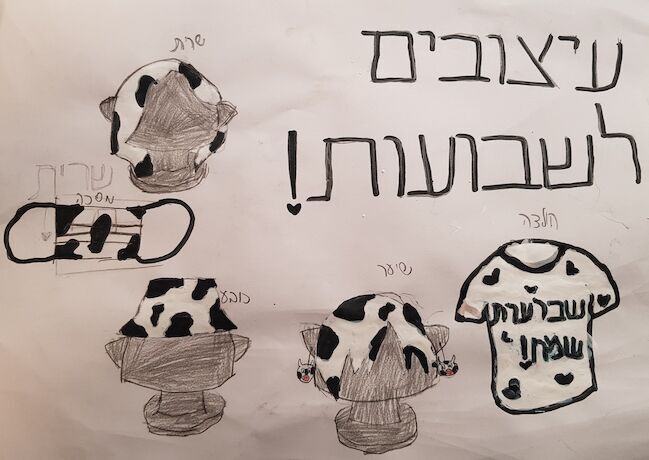 עיצובים
לשבועות!
שרית
מסכה
כובע
שיער
חלצה
שבועות
שמח!